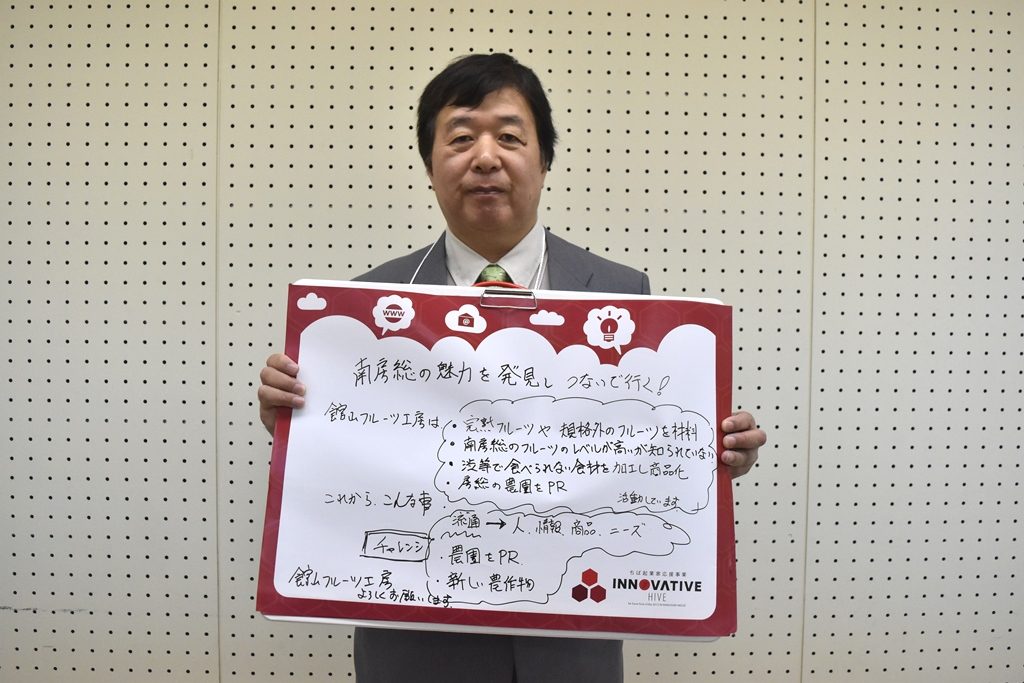 www
@
南房総の魅力を発見しつないで行く!
館山フルーツ工房は
・完熟フルーツや規格外のフルーツを材料
・南房総のフルーツのレベルが高いが知られていない
・渋等で食べられない食材を加工し商品化
・房総の農園をPR
活動しています
これから、こんな事
流通→人、情報、商品、ニーズ
チャレンジ
・農園をPR.
・新しい農作物
館山フルーツ工房
よろしくお願いします.
ちば起業家応援事業
INNOVATIVE
HIVE